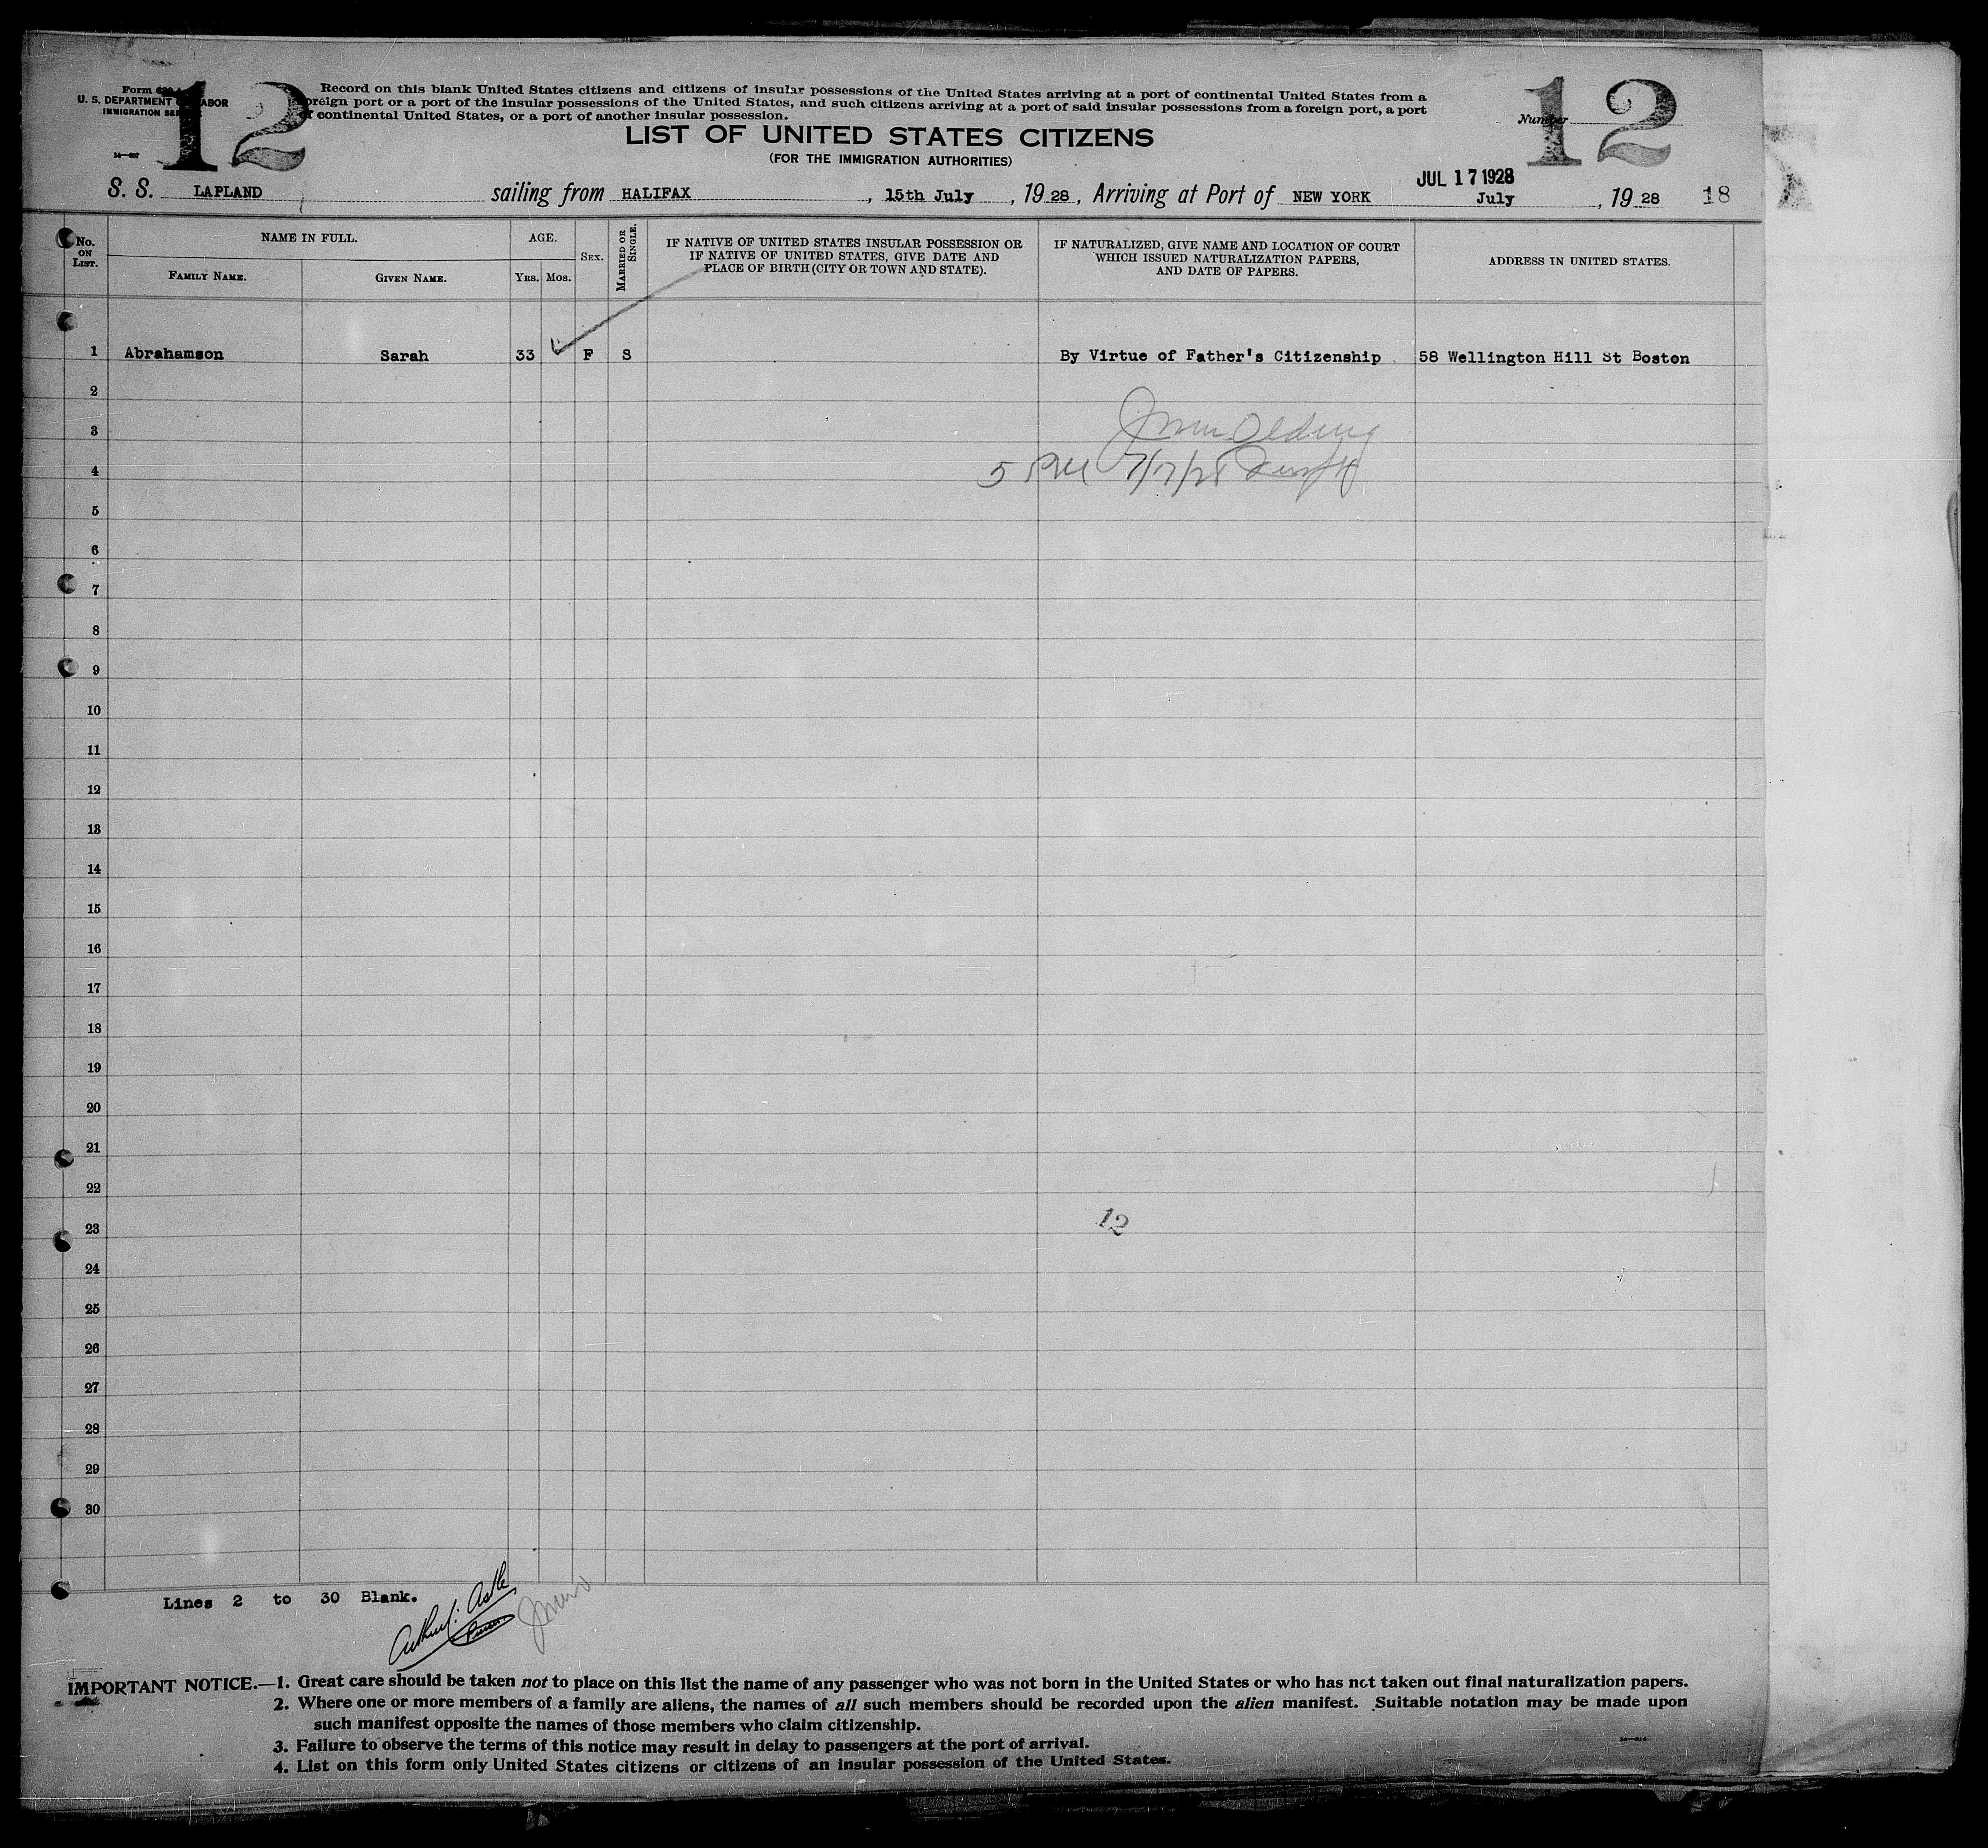 12
12
Form
U. S. DEPARTMENT OF LABOR
IMMIGRATION SERVICE
Record on this blank United States citizens and citizens of insular possessions of the United States arriving at a port of continental United States from a
foreign port or a port of the insular possessions of the United States, and such citizens arriving at a port of said insular possessions from a foreign port, a port
of continental United States, or a port of another insular possession.
Number
LIST OF UNITED STATES CITIZENS
(FOR THE IMMIGRATION AUTHORITIES)
JUL 17 1928
S. S. LAPLAND sailing from HALIFAX, 15th July, 19 28, Arriving at Port of NEW YORK July, 19 28 18
No. ON LIST.
NAME IN FULL.
FAMILY NAME.
GIVEN NAME.
AGE.
YRS. MOS.
SEX.
MARRIED OR SINGLE.
IF NATIVE OF UNITED STATES INSULAR POSSESSION OR
IF NATIVE OF UNITED STATES, GIVE DATE AND
PLACE OF BIRTH (CITY OR TOWN AND STATE).
IF NATURALIZED, GIVE NAME AND LOCATION OF COURT
WHICH ISSUED NATURALIZATION PAPERS,
AND DATE OF PAPERS.
ADDRESS IN UNITED STATES.
1 Abrahamson Sarah 33 F S By Virtue of Father's Citizenship 58 Wellington Hill St Boston
2
3
4
5 PM 7/17/28
5
6
7
8
9
10
11
12
13
14
15
16
17
18
19
20
21
22
23
12
24
25
26
27
28
29
30
Lines 2 to 30 Blank.
IMPORTANT NOTICE.—1. Great care should be taken not to place on this list the name of any passenger who was not born in the United States or who has not taken out final naturalization papers.
2. Where one or more members of a family are aliens, the names of all such members should be recorded upon the alien manifest. Suitable notation may be made upon
such manifest opposite the names of those members who claim citizenship.
3. Failure to observe the terms of this notice may result in delay to passengers at the port of arrival.
4. List on this form only United States citizens or citizens of an insular possession of the United States.